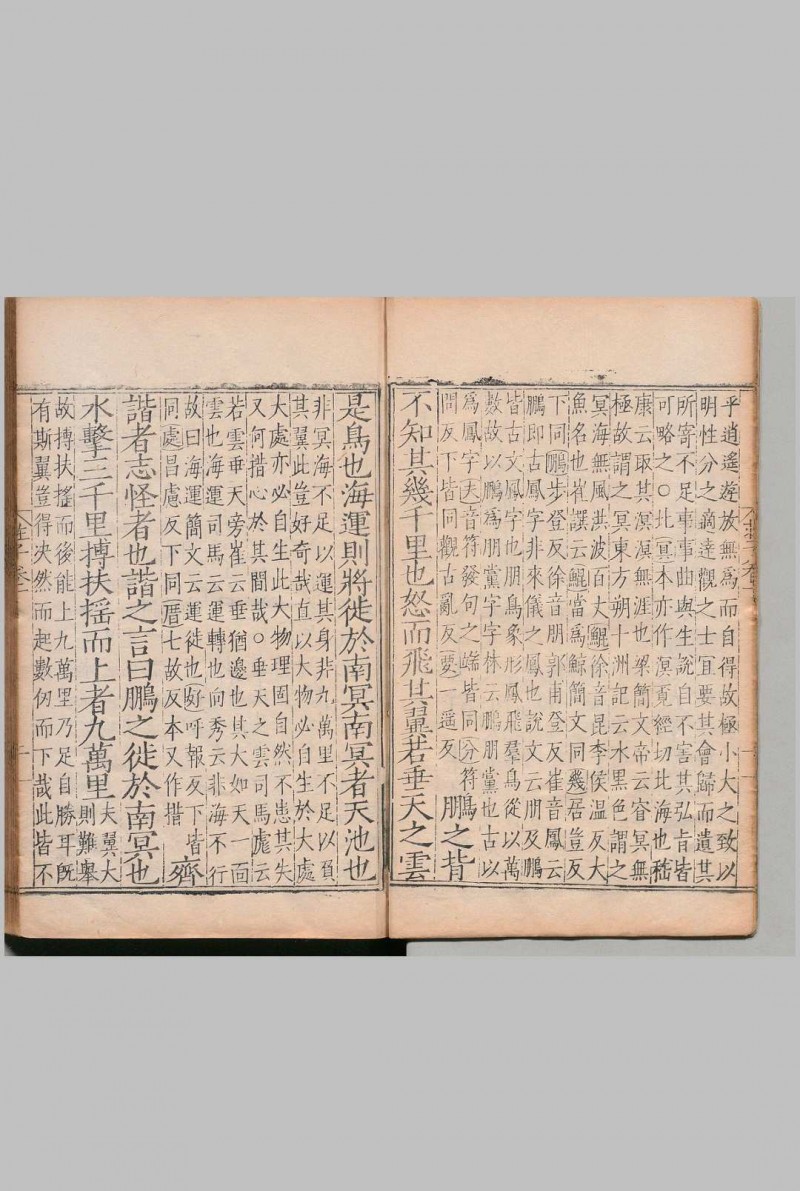 乎逍遙遊放無爲而自得故極小大之致以
明性分之適達觀之士宜要其會歸而遺其
所寄不足事事曲與生說自不害其弘旨皆
可略之○北冥本亦作溟覓經切北海也嵇
康云取其溟漠無涯也梁簡文帝云窅冥無
極故謂之冥東方朔十洲記云水黑色謂之
冥海無風洪波百丈鯤徐音昆李侯温反大
魚名也崔譔云鯤當爲鯨簡文同幾居豈反
下同鵬步登反徐音朋郭甫登反崔音鳳云
鵬即古鳳字非來儀之鳳也說文云朋及鵬
皆古文鳳字也朋鳥象形鳳飛羣鳥從以萬
數故以鵬爲朋黨字字林云鵬朋黨也古以
爲鳳字夫音符發句之端皆同分符
問反下皆同觀古亂反要一遥反
鵬之背
不知其幾千里也怒而飛其翼若垂天之雲
是鳥也海運則將徙於南冥南冥者天池也
非冥海不足以運其身非九萬里不足以負
其翼此豈好奇哉直以大物必自生於大處
大處亦必自生此大物理固自然不患其失
又何措心於其間哉○垂天之雲司馬彪云
若雲垂天旁崔云垂猶邊也其大如天一面
雲也海運司馬云運轉也向秀云非海不行
故曰海運簡文云運徙也好呼報反下皆
同處昌慮反下同厝七故反本又作措
齊
諧者志怪者也諧之言曰鵬之徙於南冥也
水擊三千里摶扶摇而上者九萬里
夫翼大
則難舉
故摶扶摇而後能上九萬里乃足自勝耳既
有斯翼豈得决然而起數仞而下哉此皆不